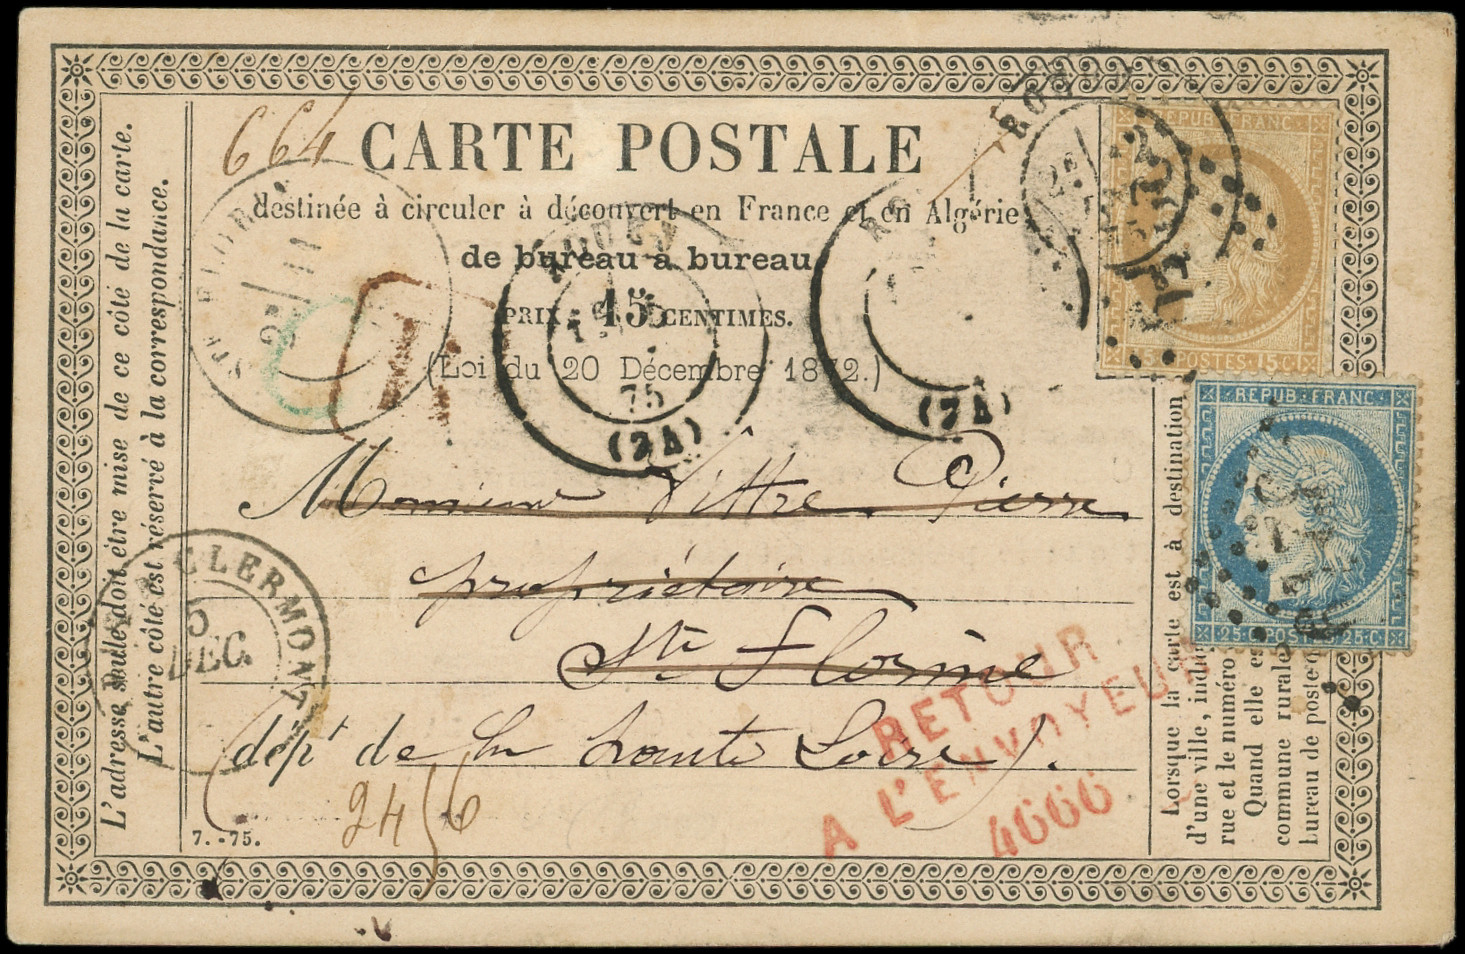 664
CARTE POSTALE
destinée à circuler à découvert en France et en Algérie
de bureau à bureau
PRIX: 15 CENTIMES.
(Loi du 20 Décembre 1872.)
L'adresse seule doit être mise de ce côté de la carte.
L'autre côté est réservé à la correspondance.
REPUB FRANC
15 C POSTES 15 C
REPUB FRANC
25 C POSTES 25 C
ROUEN
75
(74)
(74)
STE FLORINE
Monsieur Vittre Pierre
propriétaire
Ste Florine
dépt de la haute Loire.
CLERMONT
5
DEC.
RETOUR
A L'ENVOYEUR
4666
2456
7.-75.
Lorsque la carte est à destination
d'une ville, indi
rue et le numéro
Quand elle es
commune rurale
bureau de poste